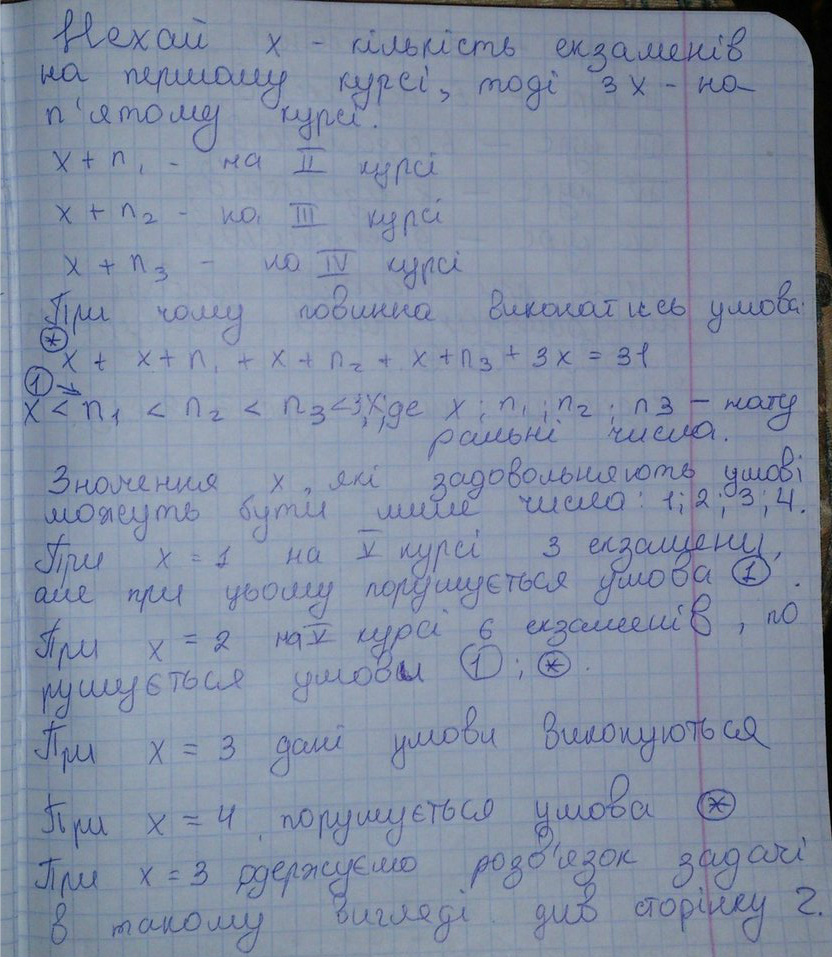 Нехай x - кількість екзаменів
на першому курсі, тоді 3x - на
п'ятому курсі.
x + n₁ - на II курсі
x + n₂ - на III курсі
x + n₃ - на IV курсі
При чому повинна виконатись умова:
(*)
x + x + n₁ + x + n₂ + x + n₃ + 3x = 31
(1) →
x < n₁ < n₂ < n₃ < 3x; де x; n₁; n₂; n3 - нату
ральні числа.
Значення x, які задовольняють умові
можуть бути лише числа: 1; 2; 3; 4.
При x = 1 на V курсі 3 екзамени,
але при цьому порушується умова (1).
При x = 2 на V курсі 6 екзаменів, по
рушується умови (1); (*).
При x = 3 дані умови виконуються
При x = 4, порушується умова (*)
При x = 3 одержуємо розв'язок задачі
в такому вигляді див сторінку 2.